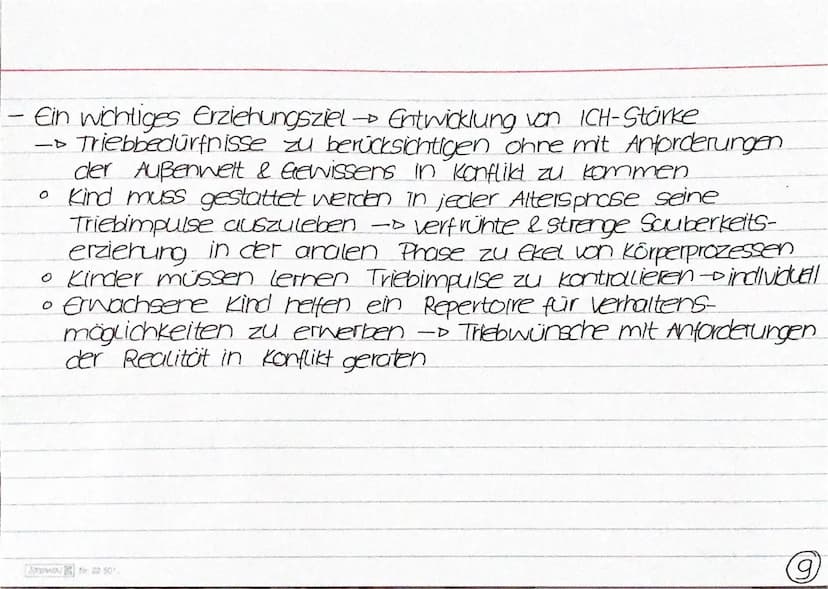 - Ein wichtiges Erziehungsziel → Entwicklung von ICH-Stärke
→ Triebbedürfnisse zu berücksichtigen ohne mit Anforderungen
der Außenwelt & Gewissens in Konflikt zu kommen
° Kind muss gestattet werden in jeder Altersphase seine
Triebimpulse auszuleben → verfrühte & strenge Sauberkeits-
erziehung in der analen Phase zu Ekel von Körperprozessen
° Kinder müssen lernen Triebimpulse zu kontrollieren → individuell
° Erwachsene Kind helfen ein Repertoire für Verhaltens-
möglichkeiten zu erwerben → Triebwünsche mit Anforderungen
der Realität in Konflikt geraten
9